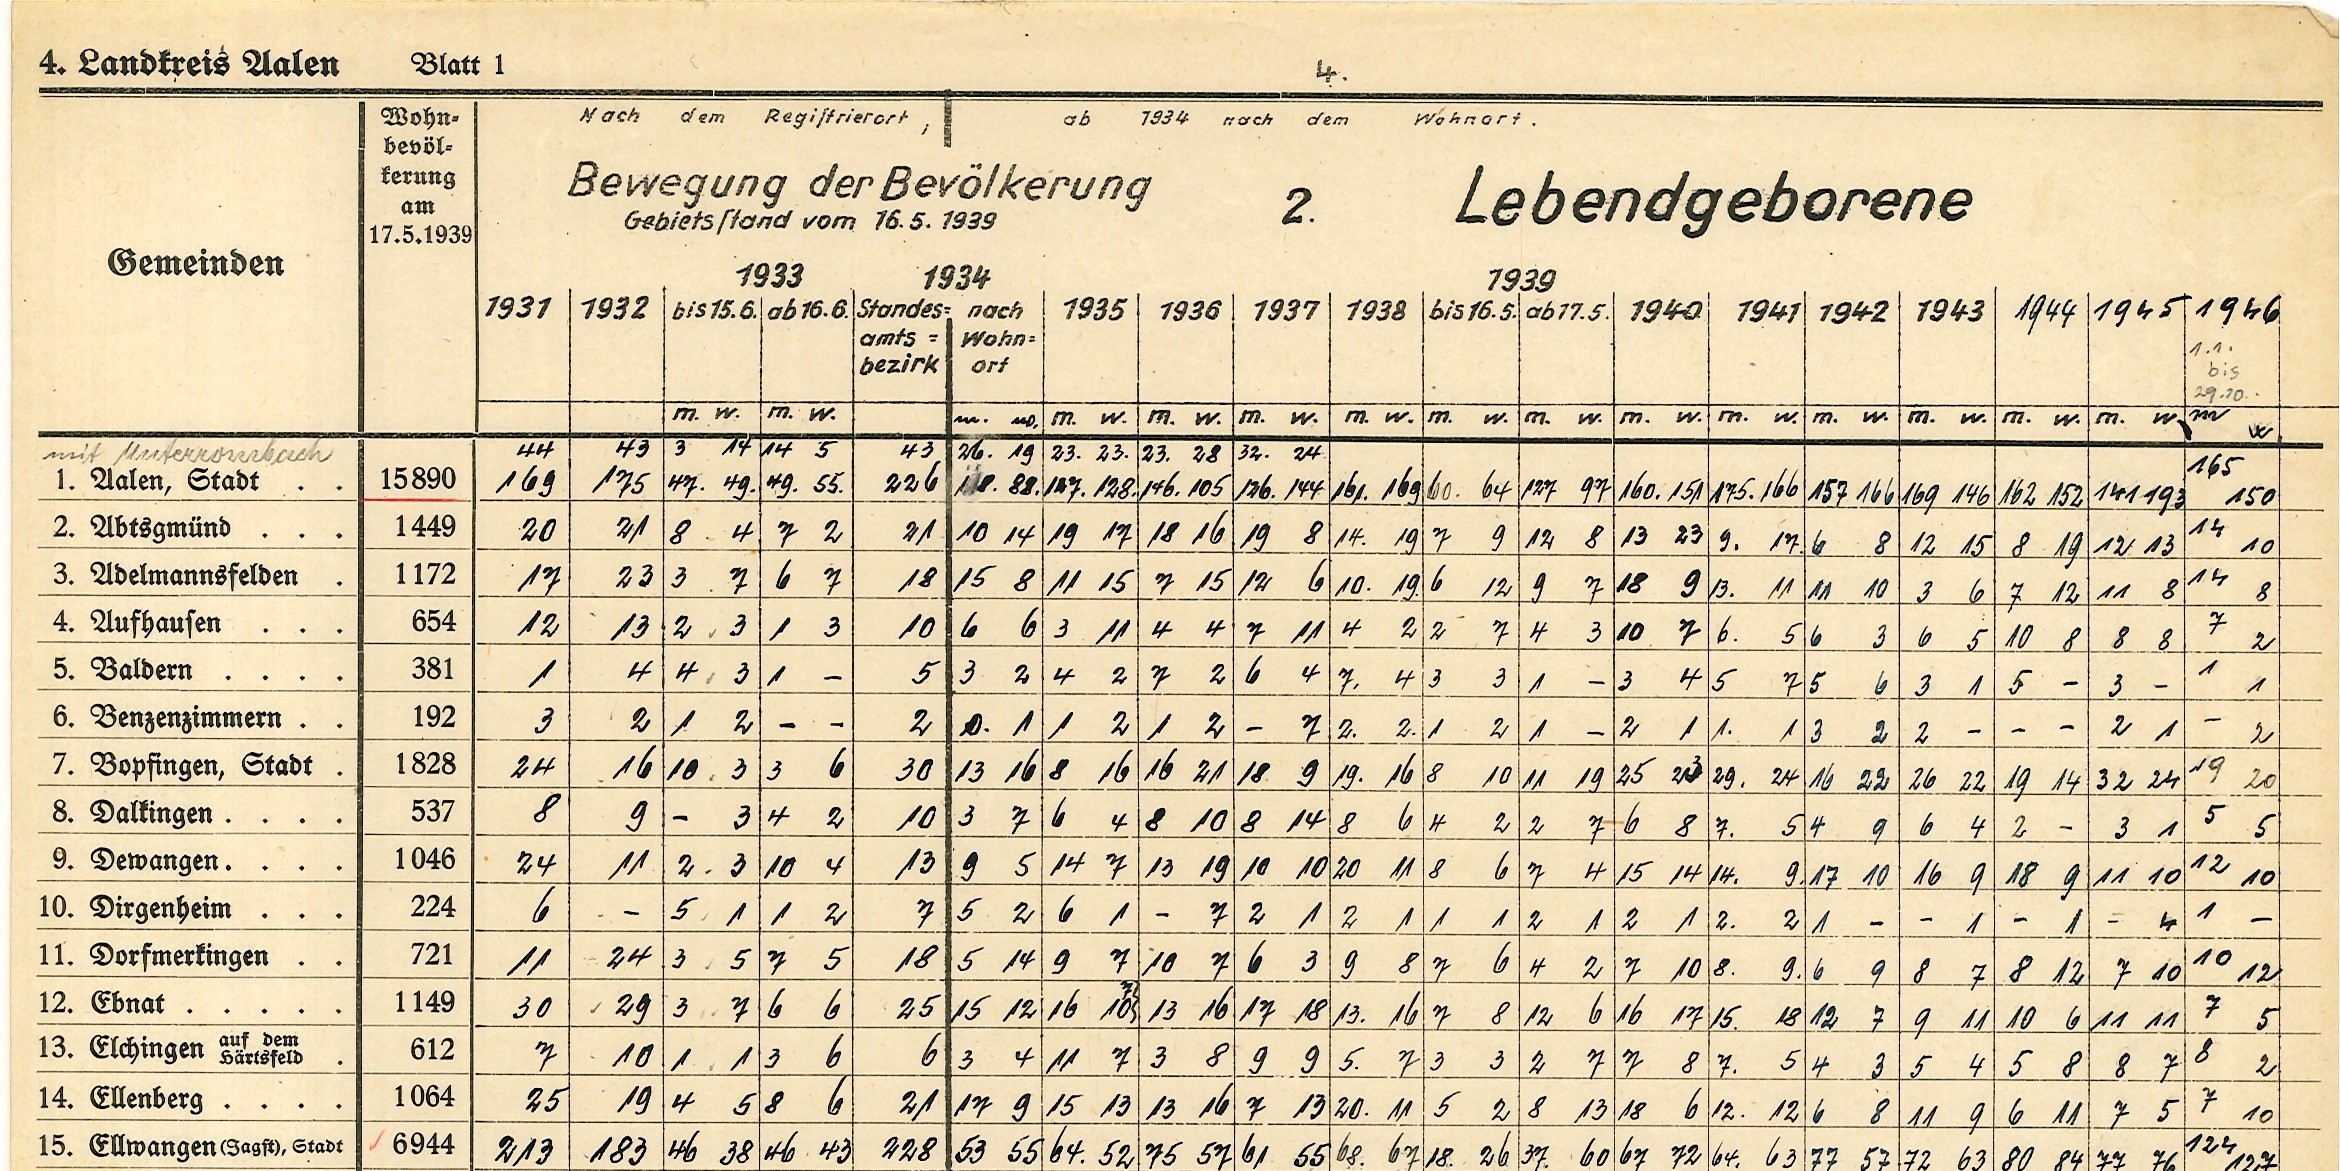 4. Landkreis Aalen Blatt 1 4.
Nach dem Registrierort, ab 1934 nach dem Wohnort.
Bewegung der Bevölkerung 2. Lebendgeborene
Gebietsstand vom 16.5.1939
Gemeinden
Wohn-
bevöl-
kerung
am
17.5.1939
1933 1934 1939
1931 1932 bis 15.6. ab 16.6. Standes= nach 1935 1936 1937 1938 bis 16.5. ab 17.5. 1940 1941 1942 1943 1944 1945 1946
amts= Wohn=
bezirk ort
1.1.
bis
29.10.
m. w. m. w. m. w. m. w. m. w. m. w. m. w. m. w. m. w. m. w. m. w. m. w. m. w. m. w. m. w. m w.
mit Unterrombach 44 43 3 14 14 5 43 26. 19 23. 23. 23. 28 32. 24
1. Aalen, Stadt . . 15890 169 175 47. 49. 49. 55. 226 88. 127. 128. 146. 105 126. 144 161. 169 60. 64 127 97 160. 151 175. 166 157 166 169 146 162 152 141 193 165 150
2. Abtsgmünd . . . 1449 20 21 8 4 7 2 21 10 14 19 17 18 16 19 8 14. 19 7 9 12 8 13 23 9. 17. 6 8 12 15 8 19 12 13 14 10
3. Adelmannsfelden . 1172 17 23 3 7 6 7 18 15 8 11 15 7 15 12 6 10. 19. 6 12 9 7 18 9 13. 11 11 10 3 6 7 12 11 8 14 8
4. Aufhausen . . . 654 12 13 2 3 1 3 10 6 6 3 11 4 4 7 11 4 2 2 7 4 3 10 7 6. 5 6 3 6 5 10 8 8 8 7 2
5. Baldern . . . . 381 1 4 4 3 1 – 5 3 2 4 2 7 2 6 4 7. 4 3 3 1 – 3 4 5 7 5 6 3 1 5 – 3 – 1 1
6. Benzenzimmern . . 192 3 2 1 2 – – 2 0. 1 1 2 1 2 – 7 2. 2. 1 2 1 – 2 1 1. 1 3 2 2 – – – 2 1 – 2
7. Bopfingen, Stadt . 1828 24 16 10 3 3 6 30 13 16 8 16 16 21 18 9 19. 16 8 10 11 19 25 23 29. 24 16 22 26 22 19 14 32 24 19 20
8. Dalkingen . . . . 537 8 9 – 3 4 2 10 3 7 6 4 8 10 8 14 8 6 4 2 2 7 6 8 7. 5 4 9 6 4 2 – 3 1 5 5
9. Dewangen . . . . 1046 24 11 2 3 10 4 13 9 5 14 7 13 19 10 10 20 11 8 6 7 4 15 14 14. 9. 17 10 16 9 18 9 11 10 12 10
10. Dirgenheim . . . 224 6 – 5 1 1 2 7 5 2 6 1 – 7 2 1 2 1 1 1 2 1 2 1 2. 2 1 – – 1 – 1 – 4 1 –
11. Dorfmerkingen . . 721 11 24 3 5 7 5 18 5 14 9 7 10 7 6 3 9 8 7 6 4 2 7 10 8. 9. 6 9 8 7 8 12 7 10 10 12
12. Ebnat . . . . . 1149 30 29 3 7 6 6 25 15 12 16 10 13 16 17 18 13. 16 7 8 12 6 16 17 15. 18 12 7 9 11 10 6 11 11 7 5
13. Elchingen auf dem Härtsfeld . 612 7 10 1 1 3 6 6 3 4 11 7 3 8 9 9 5. 7 3 3 2 7 7 8 7. 5 4 3 5 4 5 8 8 7 8 2
14. Ellenberg . . . . 1064 25 19 4 5 8 6 21 17 9 15 13 13 16 7 13 20. 11 5 2 8 13 18 6 12. 12 6 8 11 9 6 11 7 5 7 10
15. Ellwangen (Jagst), Stadt 6944 213 183 46 38 46 43 228 53 55 64. 52 75 57 61 55 68. 67 18. 26 37. 60 67 72 64. 63 77 57 72 63 80 84 77 76 124 127